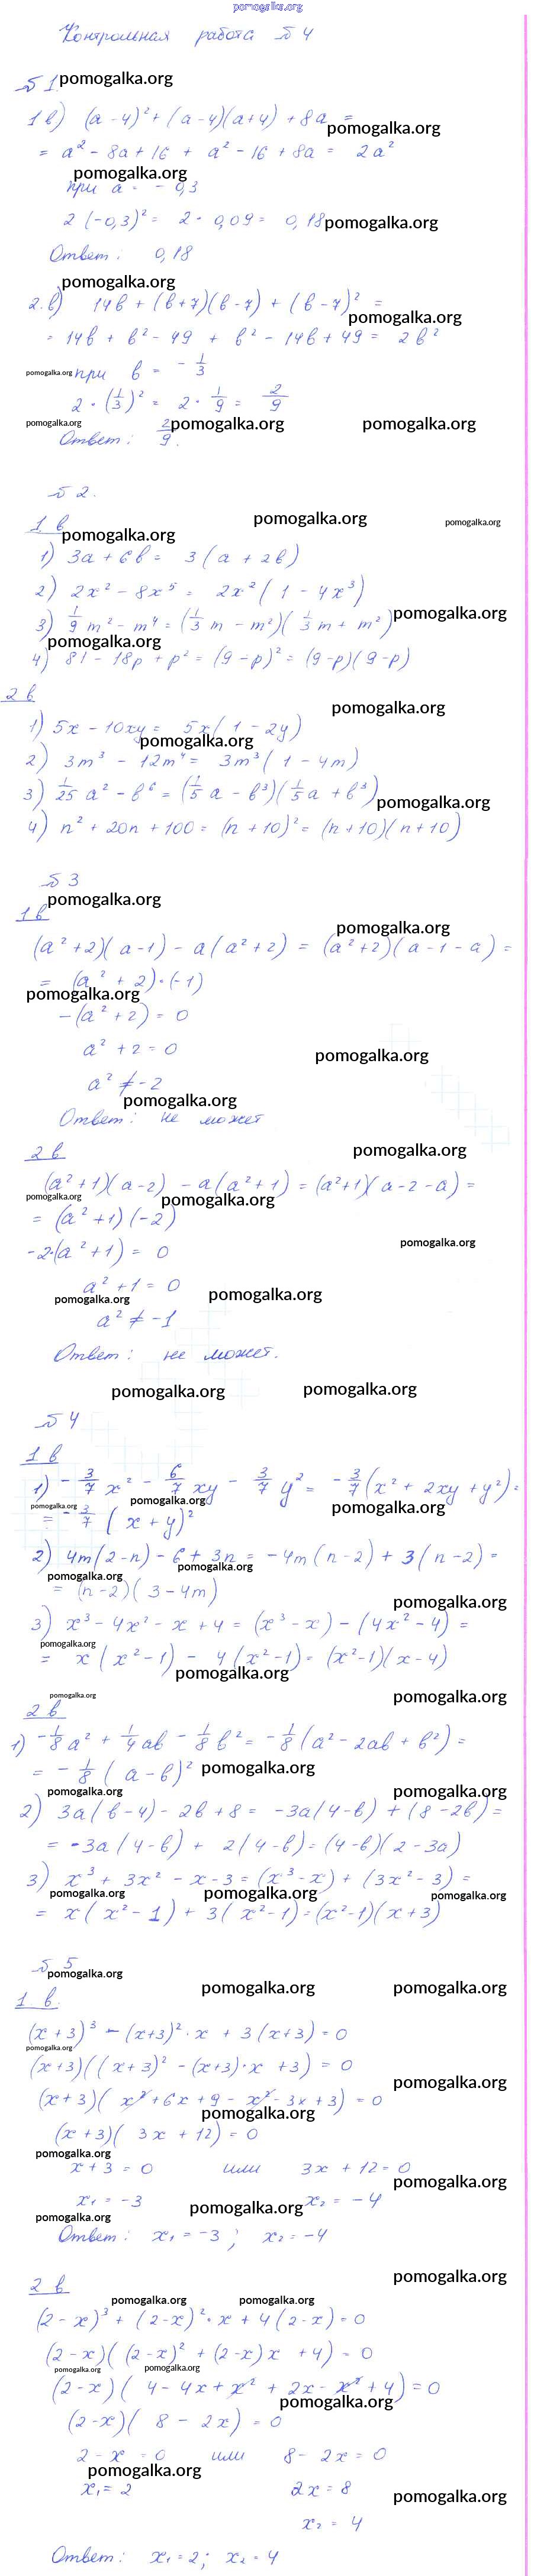 pomogalka.org
Контрольная работа № 4
№ 1 pomogalka.org
1 в) (a - 4)² + (a - 4)(a + 4) + 8a =
pomogalka.org
= a² - 8a + 16 + a² - 16 + 8a = 2a²
pomogalka.org
при a = - 0,3
2 (-0,3)² = 2 · 0,09 = 0,18 pomogalka.org
Ответ: 0,18
pomogalka.org
2.в) 14b + (b+7)(b-7) + (b-7)² =
pomogalka.org
= 14b + b² - 49 + b² - 14b + 49 = 2b²
pomogalka.org при b = - 1/3
2 · (1/3)² = 2 · 1/9 = 2/9
pomogalka.org pomogalka.org pomogalka.org
Ответ: 2/9.
№ 2.
pomogalka.org pomogalka.org
1 в
pomogalka.org
1) 3a + 6b = 3 (a + 2b)
2) 2x² - 8x⁵ = 2x² (1 - 4x³)
pomogalka.org
3) 1/9 m² - m⁴ = (1/3 m - m²)(1/3 m + m²)
pomogalka.org
4) 81 - 18p + p² = (9-p)² = (9-p)(9-p)
2 в
pomogalka.org
1) 5x - 10xy = 5x (1 - 2y)
pomogalka.org
2) 3m³ - 12m⁴ = 3m³ (1 - 4m)
3) 1/25 a² - b⁶ = (1/5 a - b³)(1/5 a + b³)
pomogalka.org
4) n² + 20n + 100 = (n + 10)² = (n+10)(n+10)
№ 3
pomogalka.org
1 в
pomogalka.org
(a² + 2)(a - 1) - a (a² + 2) = (a² + 2)(a - 1 - a) =
= (a² + 2) · (-1)
pomogalka.org
- (a² + 2) = 0
a² + 2 = 0
pomogalka.org
a² ≠ - 2
pomogalka.org
Ответ: не может
2 в
pomogalka.org
(a² + 1)(a - 2) - a (a² + 1) = (a² + 1)(a - 2 - a) =
pomogalka.org pomogalka.org
= (a² + 1) (-2)
-2·(a² + 1) = 0
pomogalka.org
a² + 1 = 0
pomogalka.org pomogalka.org
a² ≠ -1
Ответ: не может.
pomogalka.org pomogalka.org
№ 4
1 в
1) - 3/7 x² - 6/7 xy - 3/7 y² = - 3/7 (x² + 2xy + y²) =
pomogalka.org pomogalka.org pomogalka.org
= - 3/7 (x + y)²
2) 4m(2-n) - 6 + 3n = -4m (n-2) + 3 (n-2) =
pomogalka.org pomogalka.org
= (n-2)(3 - 4m)
pomogalka.org
3) x³ - 4x² - x + 4 = (x³ - x) - (4x² - 4) =
pomogalka.org
= x (x² - 1) - 4 (x² - 1) = (x² - 1)(x - 4)
pomogalka.org
pomogalka.org pomogalka.org
2 в
1) - 1/8 a² + 1/4 ab - 1/8 b² = - 1/8 (a² - 2ab + b²) =
= - 1/8 (a - b)² pomogalka.org
pomogalka.org pomogalka.org
2) 3a (b - 4) - 2b + 8 = -3a (4-b) + (8 - 2b) =
= -3a (4-b) + 2 (4-b) = (4-b)(2 - 3a)
3) x³ + 3x² - x - 3 = (x³ - x) + (3x² - 3) =
pomogalka.org pomogalka.org pomogalka.org
= x (x² - 1) + 3 (x² - 1) = (x² - 1)(x + 3)
№ 5
pomogalka.org
pomogalka.org pomogalka.org
1 в.
(x+3)³ - (x+3)² · x + 3 (x+3) = 0
pomogalka.org
(x+3)((x+3)² - (x+3) · x + 3) = 0
pomogalka.org
(x+3)(x² + 6x + 9 - x² - 3x + 3) = 0
pomogalka.org
(x+3)(3x + 12) = 0
pomogalka.org
x + 3 = 0 или 3x + 12 = 0
pomogalka.org
x₁ = -3 pomogalka.org x₂ = - 4
pomogalka.org
Ответ: x₁ = -3; x₂ = -4
pomogalka.org
2 в
pomogalka.org pomogalka.org
(2 - x)³ + (2-x)² · x + 4 (2-x) = 0
(2-x)((2-x)² + (2-x) x + 4) = 0
pomogalka.org pomogalka.org
(2-x)(4 - 4x + x² + 2x - x² + 4) = 0
pomogalka.org
(2-x)(8 - 2x) = 0
2 - x = 0 или 8 - 2x = 0
pomogalka.org
x₁ = 2 2x = 8
pomogalka.org
x₂ = 4
Ответ: x₁ = 2; x₂ = 4